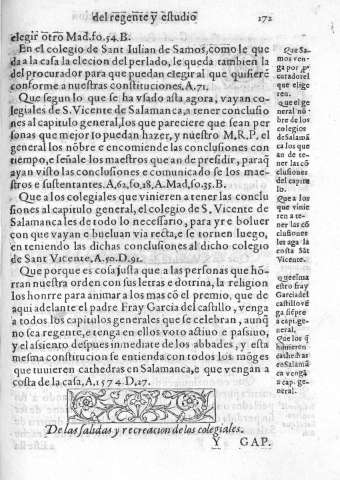 del regente y estudio 172
elegir otro Mad. fo. 54. B.
En el colegio de Sant Iulian de Samos, como le que
da a la casa la elecion del perlado, le queda tambien la
del procurador para que puedan elegir al que quisierē
conforme a nuestras constituciones. A. 71.
Que segun lo que se ha vsado asta agora, vayan co-
legiales de S. Vicente de Salamanca, a tener conclusio
nes al capitulo general, los que pareciere que sean per
sonas que mejor lo puedan hazer, y nuestro M. R. P. el
general los nōbre e encomiende las conclusiones con
tiempo, e señale los maestros que an de presidir, paraq̄
ayan visto las conclusiones e comunicado se los mae-
stros e sustentantes. A, 62, fo, 18, A. Mad, fo. 35. B.
Que a los colegiales que vinieren a tener las conclu
siones al capitulo general, el colegio de S, Vicente de
Salamanca les de todo lo necessario, para yr e boluer
con que vayan e bueluan via recta, e se tornen luego,
en teniendo las dichas conclusiones al dicho colegio
de Sant Vicente, A. 50. D. 91.
Que porque es cosa justa que a las personas que hō-
rran nuestra orden con sus letras e dotrina, la religion
los honrre para animar a los mas cō el premio, que de
aqui adelante el padre Fray Garcia del castillo, venga
a todos los capitulos generales que se celebran, aunq̄
no sea regente, e tenga en ellos voto actiuo e passiuo,
y el assiento despues inmediate de los abbades, y esta
mesma constitucion se entienda con todos los mōges
que tuuieren cathedras en Salamanca, e que vengan a
costa de la casa, A. 1574. D. 27.
De las salidas y recreacion de los colegiales.
Y CAP.
Que Sa-
mos ven-
ga por p̄
curador el
que eligie
ren.
q̄ el gene
ral nō bre
de los
colegios
de Salam
ca los que
an de te-
ner las cō
clusiones
del capitu
lo.
Que a los
que vinie
ren a te-
ner las cō
clusiones
les aga la
costa Sāt
Vicente.
Garcia del
castillo vē
ga siēpre
a capi. ge
neral.
Que los q̄
huuieren
cathedras
en Salamā
ca vengā
a cap. ge-
neral.